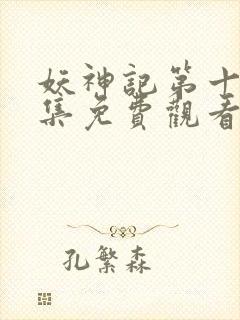 妖神記第十
集免費觀看
孔繁森